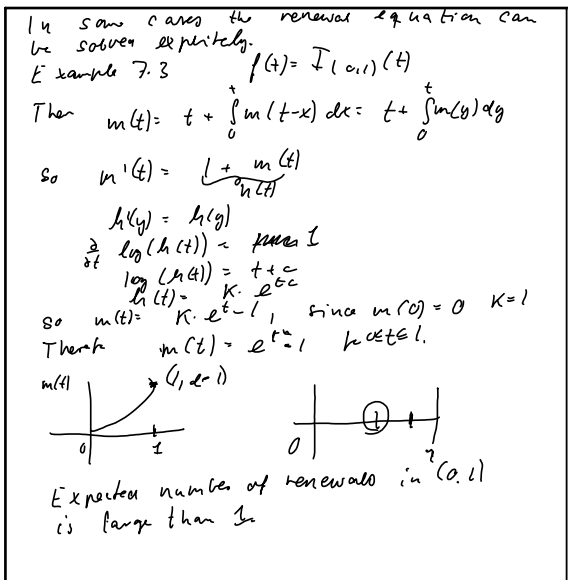 In some cases the renewal equation can
be solved explicitely.
Example 7.3 f(t) = I_(0,1)(t)
Then m(t) = t + ∫_0^t m(t-x) dx = t + ∫_0^t m(y) dy
So m'(t) = 1 + m(t)
h(t)
h'(y) = h(y)
∂/∂t log(h(t)) = 1
log(h(t)) = t + c
h(t) = K · e^t
So m(t) = K · e^t - 1, since m(0) = 0 K = 1
m(t) = e^t - 1 0≤t≤1.
m(t) (1, e-1)
0 1 0 1
Expected number of renewals in (0,1)
is large than 1